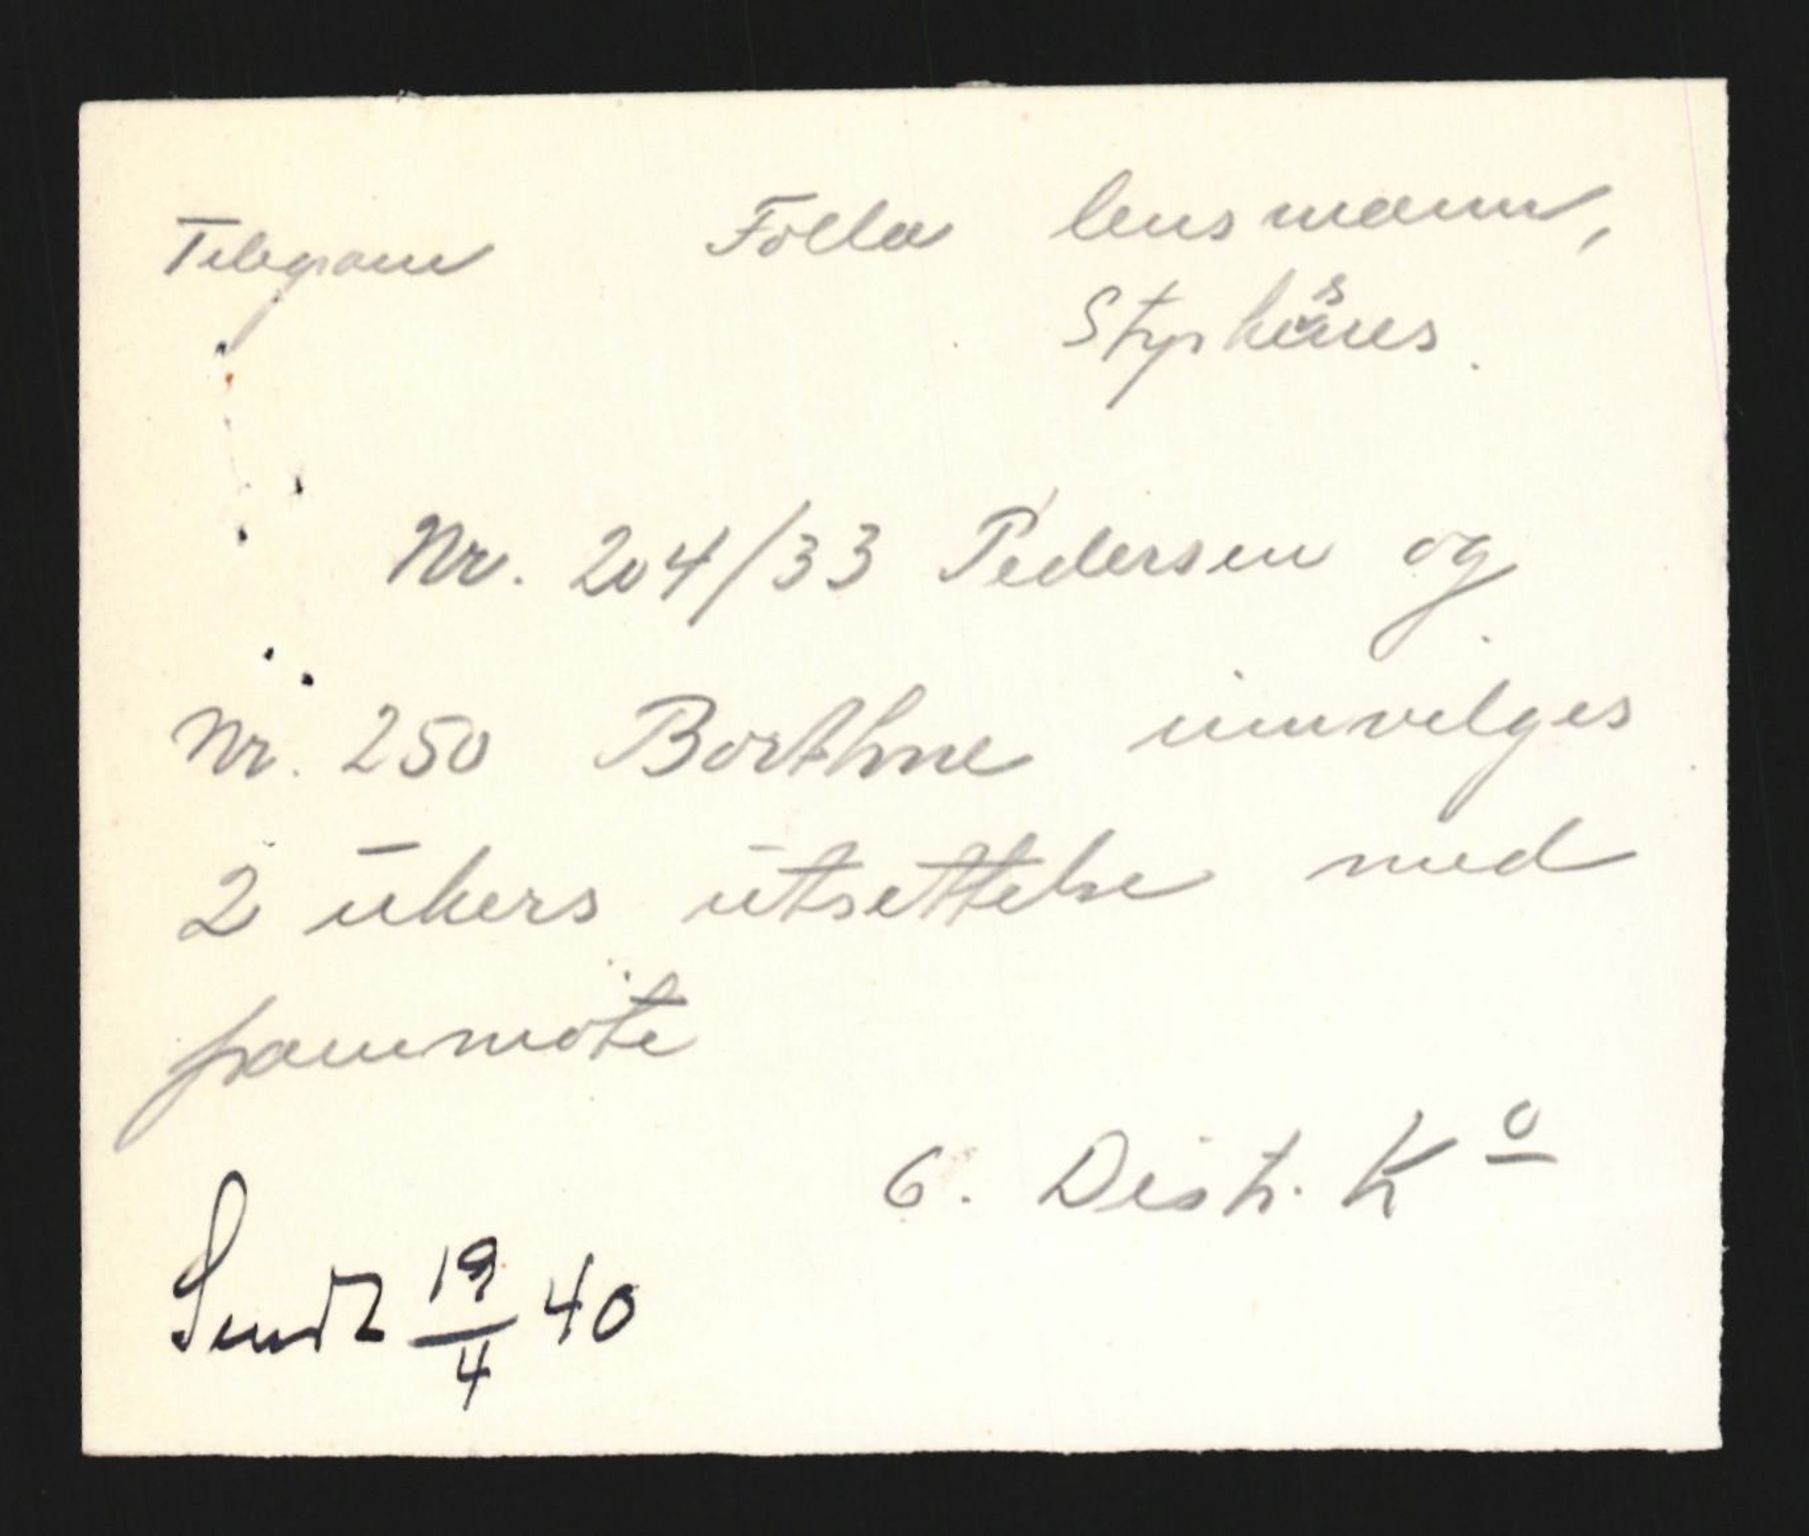 Telegram Folla lensmann,
Styrkesnes.
Nr. 204/33 Pedersen og
Nr. 250 Borthne innvilges
2 ukers utsettelse med
frammöte
6. Distr. Ko
Sendt 19/4 40